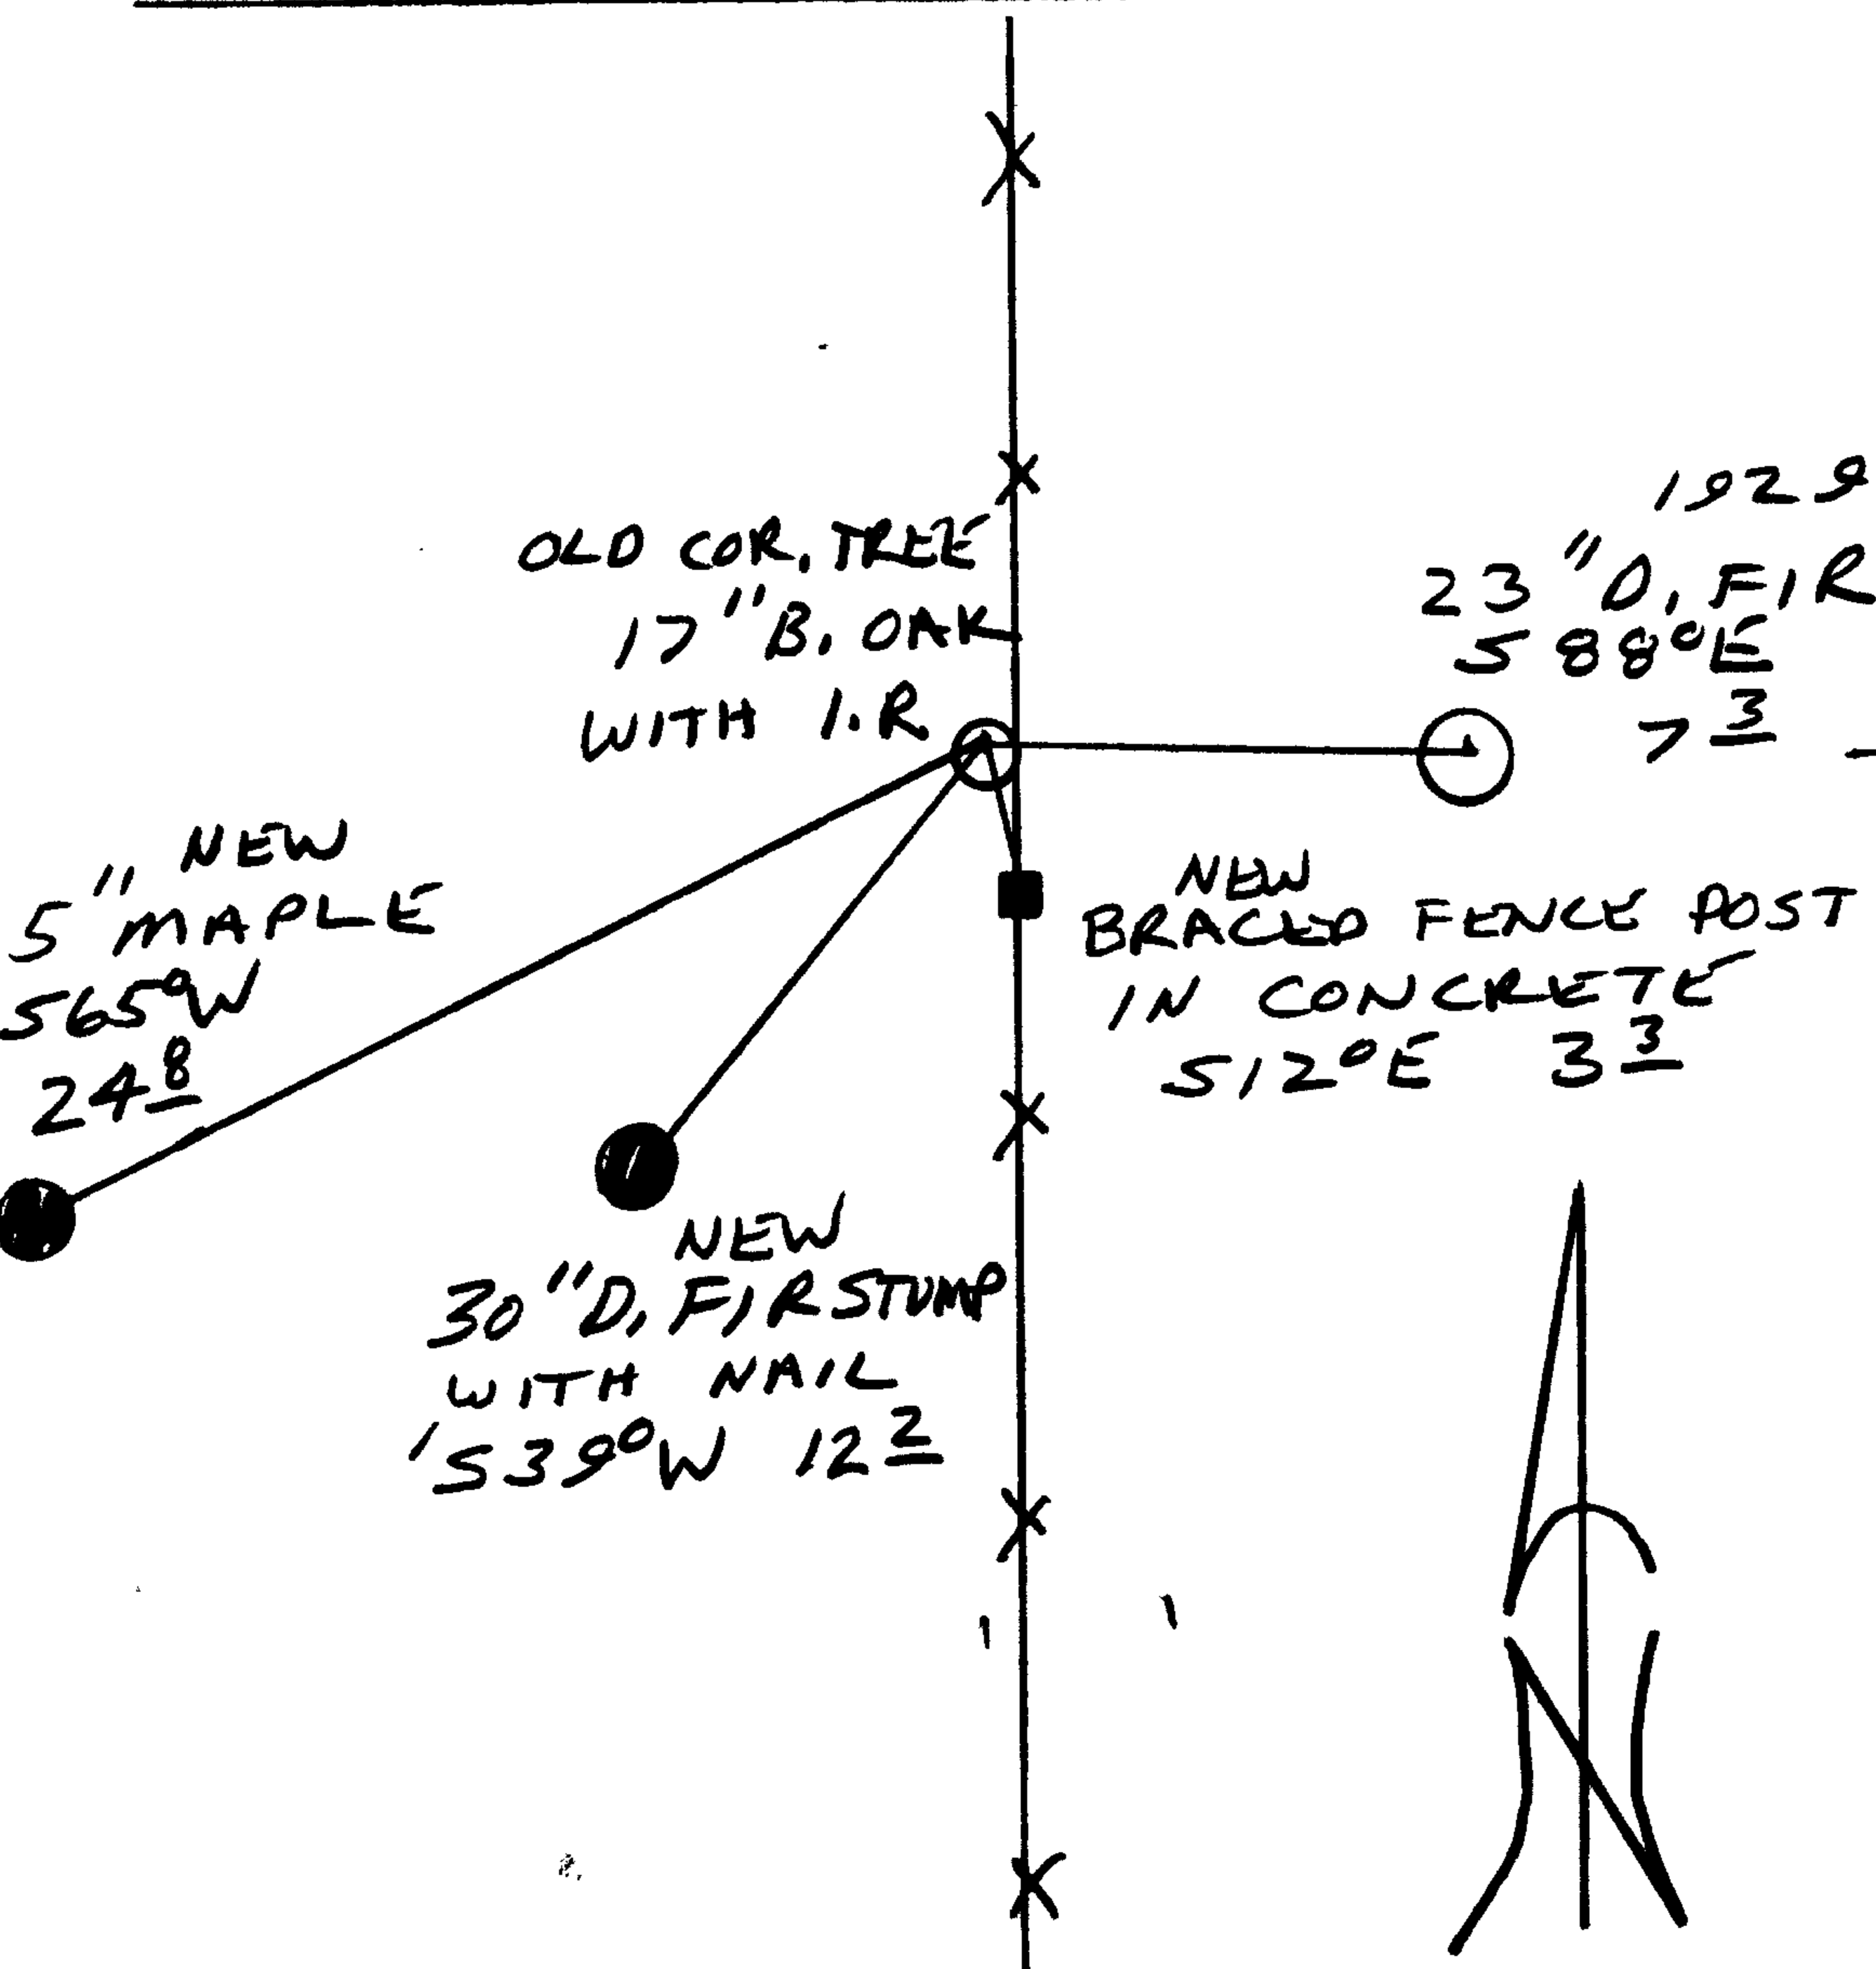 1929
OLD COR. TREE
17" B. OAK
WITH I.R.
23" D. FIR
S 88° E
7 3
NEW
5" MAPLE
S65°W
24 8
NEW
BRACED FENCE POST
IN CONCRETE
S12°E 3 3
NEW
30" D. FIR STUMP
WITH NAIL
S39°W 12 2
N